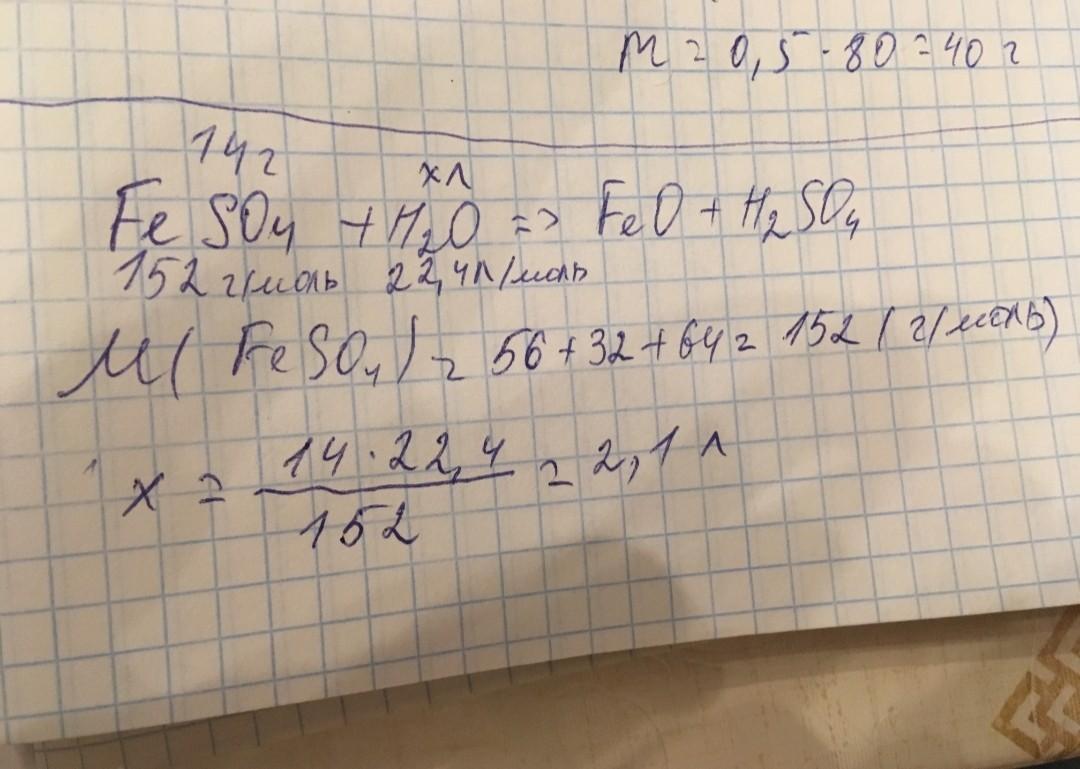 m = 0,5 · 80 = 40 г
14 г
x л
FeSO4 + H2O => FeO + H2SO4
152 г/моль 22,4 л/моль
M(FeSO4) = 56 + 32 + 64 = 152 (г/моль)
x = 14 · 22,4 / 152 = 2,1 л